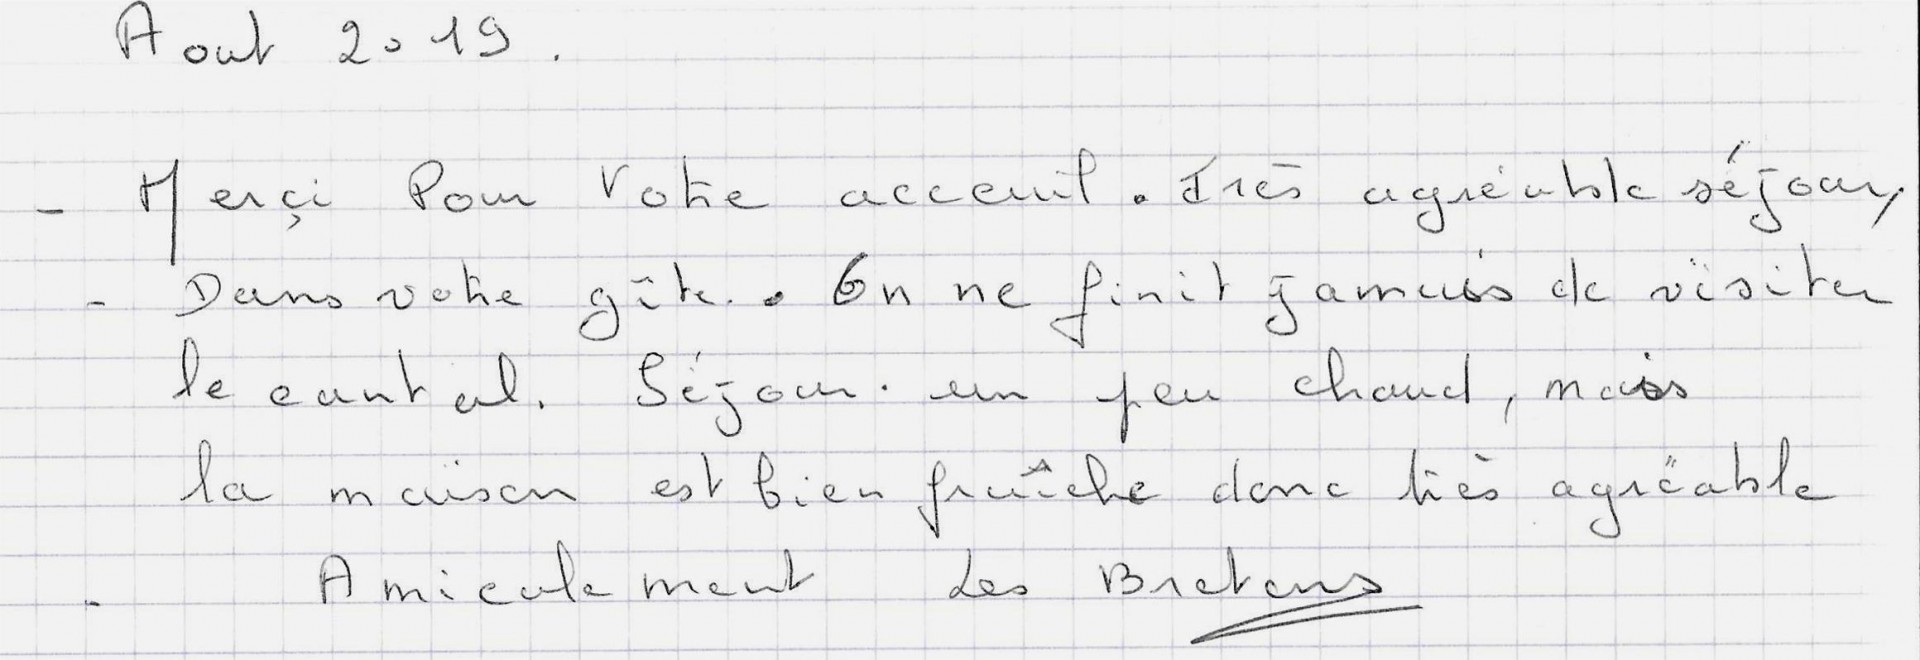 Aout 2019.
- Merçi Pour Votre acceuil. Très agréable séjour,
- Dans votre gîte.. On ne finit jamais de visiter
le cantal. Séjour. un peu chaud, mais
la maison est bien fraîche donc très agréable
- Amicalement Les Bretons